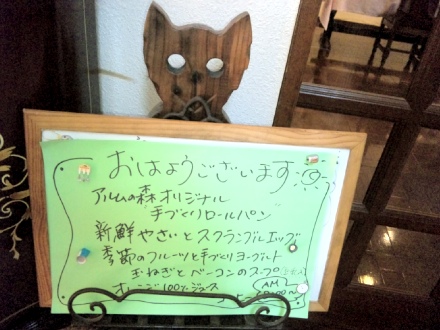 おはようございます
アルムの森オリジナル
手づくりロールパン
新鮮やさいとスクランブルエッグ
季節のフルーツと手づくりヨーグルト
玉ねぎとベーコンのスープ
オレンジ100%ジュース
AM